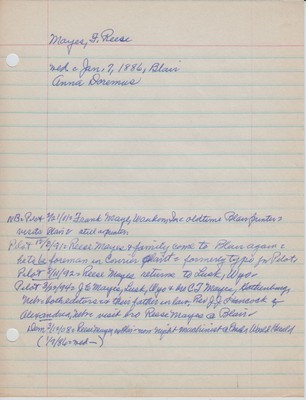 Mayes, F. Reese
md c Jan. 7, 1886, Blair
Anna Doremus
NB: Pilot 9/21/10: Frank Mayes, Waukon, Ia. oldtime Blair printer
visits Blair & still a printer
Pilot 10/8/91: Reese Mayes & family come to Blair again &
he to be foreman in plant & formerly typo for Pilot
Pilot 8/11/92: Reese Mayes returns to Lusk, Wyo
Pilot J E Mayes, Lusk, Wyo & bro C T Mayes, Gothenburg,
Nebr both editors & their father in law, Rev. J. J.
Alexandria, Nebr visit bro Reese Mayes @ Blair
Dem. Reese Mayes now night machinist @ Omaha World Herald
(1/7/86 = md —)